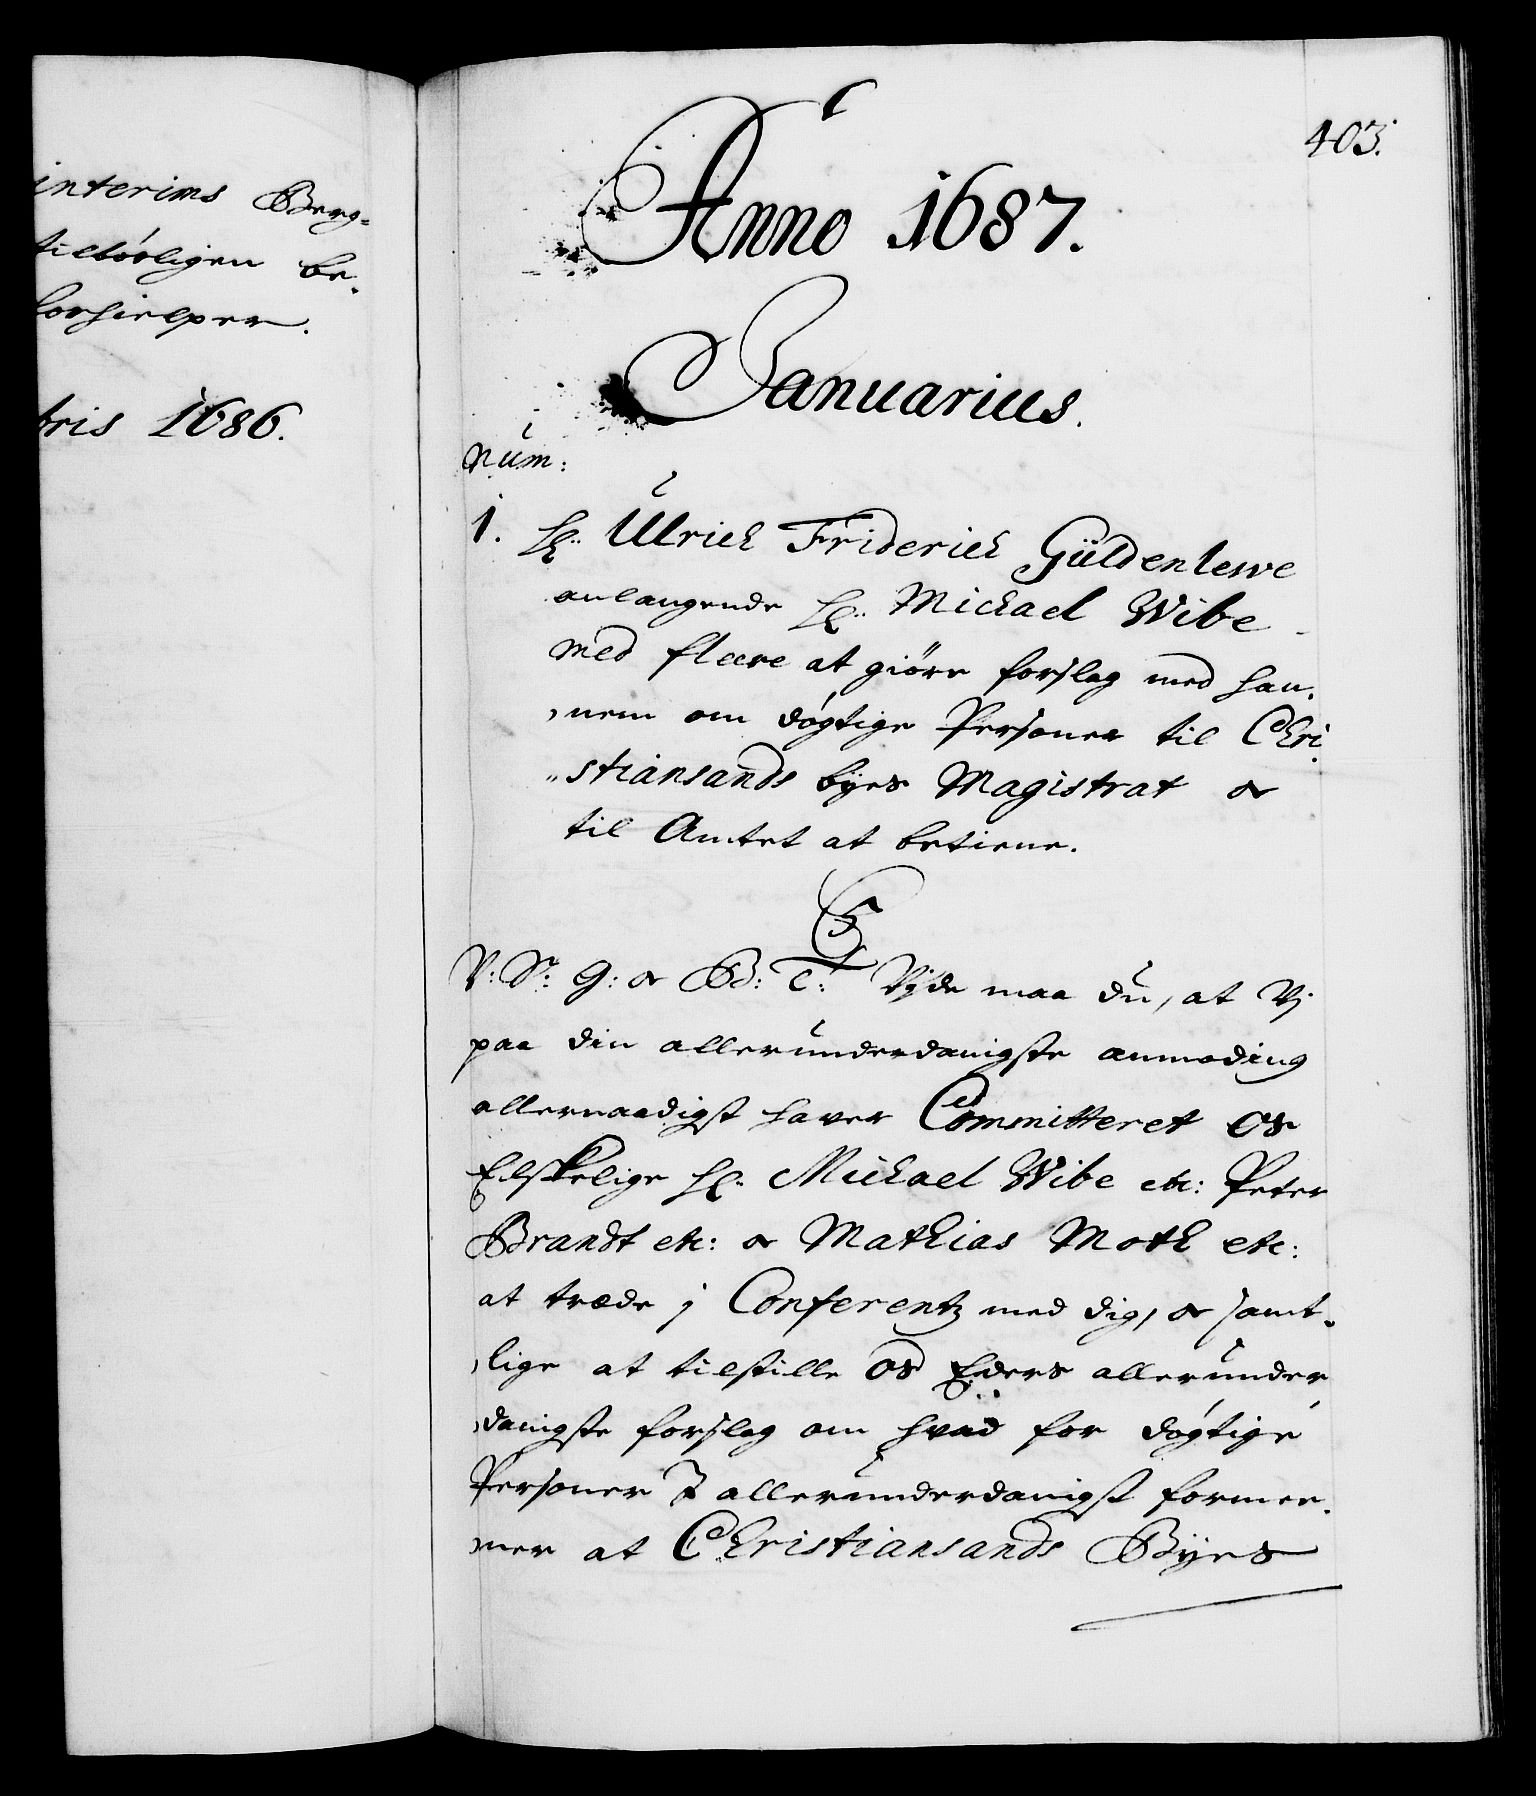 interims Berg-
tilbörligen be-
forhielper.
tris 1686.
403.
Anno 1687.
Januarius.
Num:
1. Hr. Ulrich Friderich Güldenlewe
anlangende Hr. Michael Wibe
med fleere at giöre forslag med han-
nem om døgtige Personer til Chri-
stiansands byes Magistrat oc
til Amtet at betiene.
C5
V: S: G: oc B: T: Vide maa du, at Vi
paa din allerunderdanigste anmoding
allernaadigst hafver Committeret Os
Elskelige Hr. Michael Wibe etc: Peter
Brandt etc: oc Mathias Moth etc:
at træde i Conferentz med dig, oc samt-
lige at tilstille Os Eders allerunder
danigste forslag om hvad for døgtige
Personer I allerunderdanigst formee-
ner at Christiansands Byes